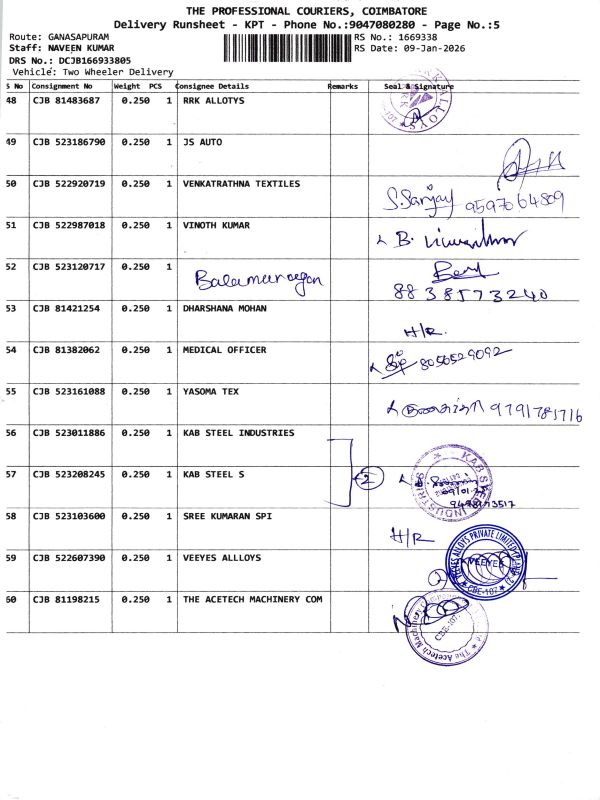 THE PROFESSIONAL COURIERS, COIMBATORE
Delivery Runsheet - KPT - Phone No.:9047080280 - Page No.:5
Route: GANASAPURAM
RS No.: 1669338
Staff: NAVEEN KUMAR
RS Date: 09-Jan-2026
DRS No.: DCJB166933805
Vehicle: Two Wheeler Delivery
S No Consignment No Weight PCS Consignee Details Remarks Seal & Signature
48 CJB 81483687 0.250 1 RRK ALLOTYS
49 CJB 523186790 0.250 1 JS AUTO
50 CJB 522920719 0.250 1 VENKATRATHNA TEXTILES S.Sanjay 9597064809
51 CJB 522987018 0.250 1 VINOTH KUMAR B.
52 CJB 523120717 0.250 1 Balamurugan
8838573240
53 CJB 81421254 0.250 1 DHARSHANA MOHAN H/R.
54 CJB 81382062 0.250 1 MEDICAL OFFICER 8056529092
55 CJB 523161088 0.250 1 YASOMA TEX 9791781716
56 CJB 523011886 0.250 1 KAB STEEL INDUSTRIES
57 CJB 523208245 0.250 1 KAB STEEL S 2
58 CJB 523103600 0.250 1 SREE KUMARAN SPI H/R
59 CJB 522607390 0.250 1 VEEYES ALLLOYS
VEEYES ALLOYS PRIVATE LIMITED
CBE-107.
60 CJB 81198215 0.250 1 THE ACETECH MACHINERY COM
The Acetech Machinery
CBE-107.